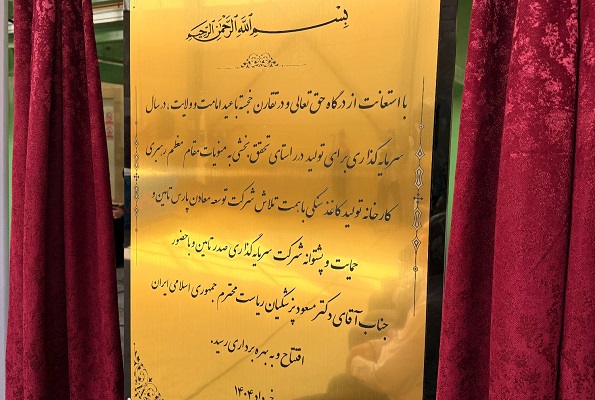 بسم الله الرحمن الرحیم
با استعانت از درگاه حق تعالی و در تقارن خجسته با عید امامت و ولایت، در سال
سرمایه گذاری برای تولید در راستای تحقق بخشی به منویات مقام معظم رهبری
کارخانه تولید کاغذ سنگی با همت تلاش شرکت توسعه معادن پارس تامین و
حمایت و پشتوانه شرکت سرمایه گذاری صدر تامین و با حضور
جناب آقای دکتر مسعود پزشکیان ریاست محترم جمهوری اسلامی ایران
افتتاح و به بهره برداری رسید.
خرداد ۱۴۰۴